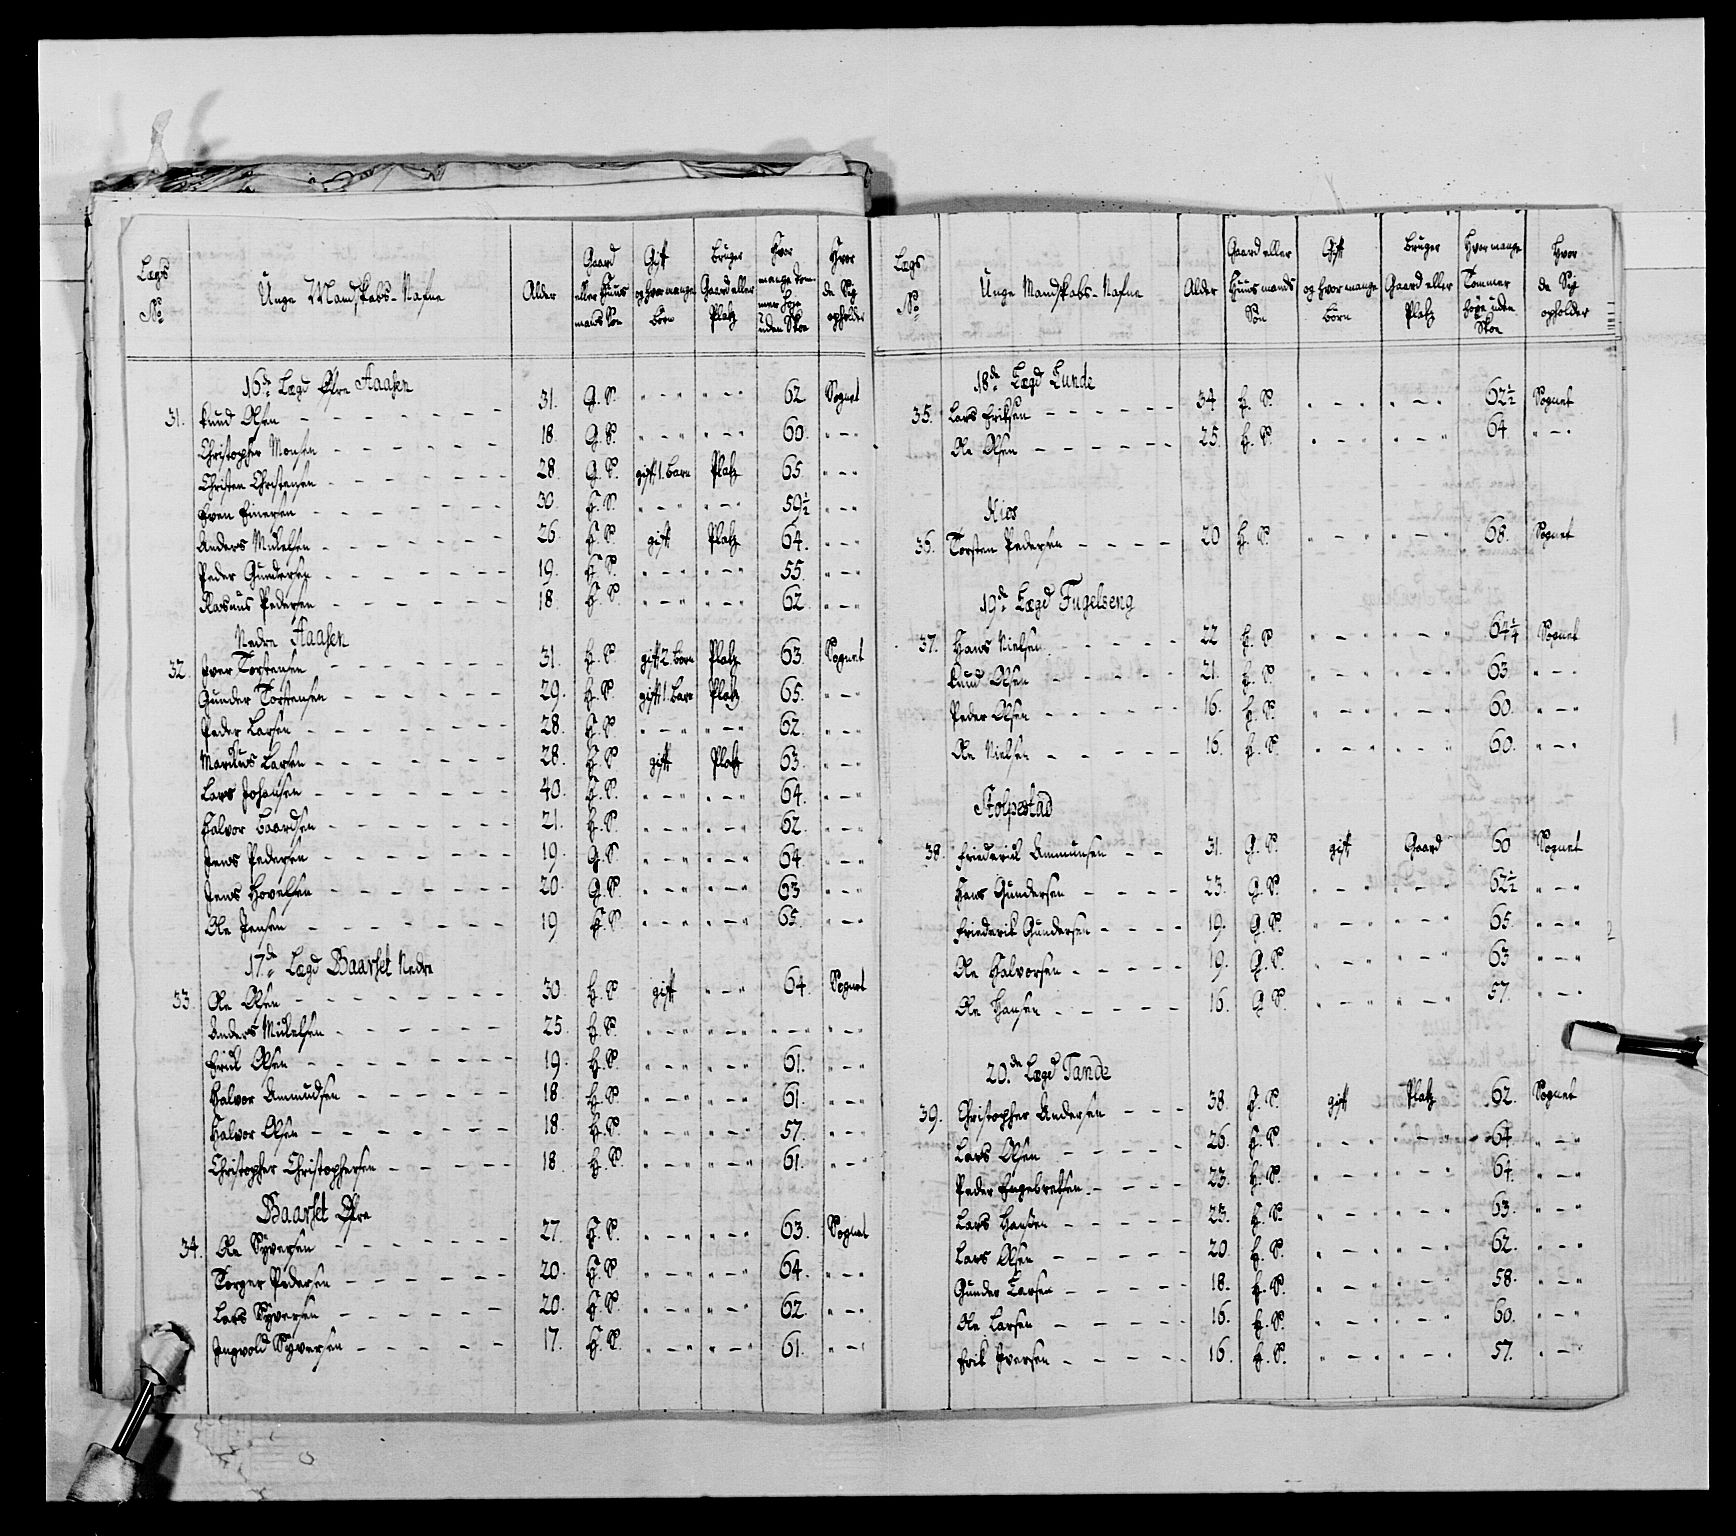 Lægs No | Unge Mandskabs-Nafne | Alder | Gaard eller Huus mands Søn | Gift og hvor mange Børn | Bruger Gaard eller Platz | Hvor mange Tommer høye uden Skoe | Hvor de Sig opholder
16de Lægd Øfre Aaasen
31. Knud Olsen - - - 31. G.S. " - " " - " 62 Sognet
Christopher Monsen - - - 18. G.S. " - " " - " 60. " - "
Christen Christensen - - - 28 G.S. gift 1. Barn Platz 65 " - "
Even Einersen - - - 30. H.S. " - " " - " 59½ " - "
Anders Mickelsen - - - 26. H.S. gift Platz 64. " - "
Peder Gundersen - - - 19. H.S. " - " " - " 55. " - "
Rasmus Pedersen - - - 18. H.S. " - " " - " 62. " - "
Nedre Aaasen
32 Iver Torstensen - - - 31. H.S. gift 2. Børn Platz 63. Sognet
Gunder Torstensen - - - 29. H.S. gift 1. Barn Platz 65. " - "
Peder Larsen - - - 28. H.S. " - " " - " 62. " - "
Marcus Larsen - - - 28. H.S. gift Platz 63. " - "
Lars Johansen - - - 40. H.S. " - " " - " 64. " - "
Halvor Baardsen - - - 21. H.S. " - " " - " 62. " - "
Jens Pedersen - - - 19. G.S. " - " " - " 64. " - "
Jens Hovelsen - - - 20. G.S. " - " " - " 63 " - "
Ole Jensen - - - 19 H.S. " - " " - " 65. " - "
17de Lægd Baarset Nedre
33. Ole Olsen - - - 30. H.S. gift " - " 64. Sognet
Anders Mickelsen - - - 25. H.S. " - " " - " " - " " - "
Erick Olsen - - - 19. H.S. " - " " - " 61. " - "
Halvor Ammudsen - - - 18. H.S. " - " " - " 61. " - "
Halvor Olsen - - - 18. H.S. " - " " - " 57. " - "
Christopher Christophersen - - - 18. H.S. " - " " - " 61. " - "
Baarset Øfre
34. Ole Syversen - - - 27. H.S. " - " " - " 63. Sognet
Torger Pedersen - - - 20. H.S. " - " " - " 64. " - "
Lars Syversen - - - 20. H.S. " - " " - " 62 " - "
Ingvold Syversen - - - 17. H.S. " - " " - " 61. " - "
Lægs No | Unge Mandskabs-Nafne | Alder | Gaard eller Huusmands Søn | Gift og hvor mange Børn | Bruger Gaard eller Platz | Hvor mange Tommer høye uden Skoe | Hvor de Sig opholder
18de Lægd Lunde
35. Lars Eriksen - - - 34 H.S. " - " " - " 62½ Sognet
Ole Olsen - - - 25. H.S. " - " " - " 64. " - "
Nios
36. Torsten Pedersen - - - 20 H.S. " - " " - " 68. Sognet
19de Lægd Fugelseng
37. Hans Nielsen - - - 22 H.S. " - " " - " 64¼ Sognet
Knud Olsen - - - 21. H.S. " - " " - " 63. " - "
Peder Olsen - - - 16. H.S. " - " " - " 60. " - "
Ole Nielsen - - - 16. H.S. " - " " - " 60. " - "
Stolpestad
38. Friderick Ammunsen - - - 31. G.S. gift Gaard 60 Sognet
Hans Gundersen - - - 23. G.S. " - " " - " 62½ " - "
Friederik Gundersen - - - 19. G.S. " - " " - " 65. " - "
Ole Halvorsen - - - 19. G.S. " - " " - " 63 " - "
Ole Hansen - - - 16. G.S. " - " " - " 57. " - "
20.de Lægd Tande
39. Christopher Andersen - - - 38. H.S. gift Platz 62. Sognet
Lars Olsen - - - 26. H.S. " - " " - " 64. " - "
Peder Engebretsen - - - 23. H.S. " - " " - " 64. " - "
Lars Hansen - - - 23. H.S. " - " " - " 63. " - "
Lars Olsen - - - 20. H.S. " - " " - " 62. " - "
Gunder Larsen - - - 18. H.S. " - " " - " 58. " - "
Ole Larsen - - - 16. H.S. " - " " - " 60. " - "
Erik Iversen - - - 16. H.S. " - " " - " 57. " - "